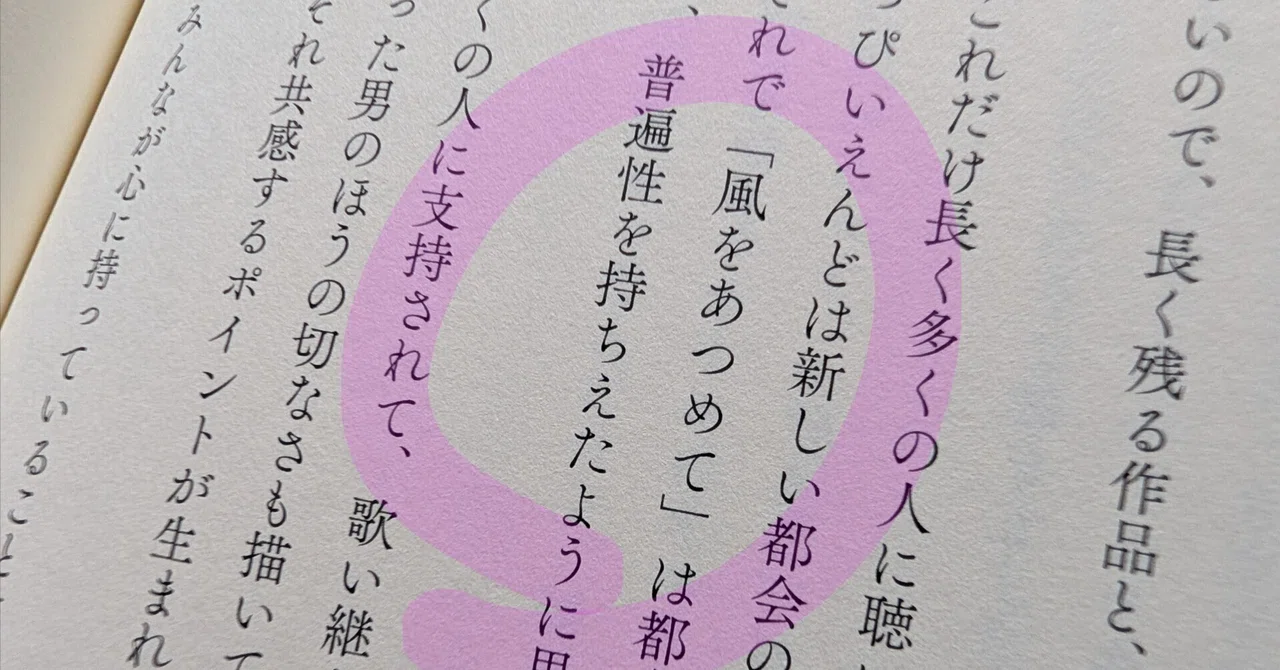 いので、長く残る作品と、
これだけ長く多くの人に聴
っぴいえんどは新しい都会の
れで「風をあつめて」は都
普遍性を持ちえたように思
くの人に支持されて、歌い継
った男のほうの切なさも描いて
それ共感するポイントが生まれ
みんなが心に持っているこ